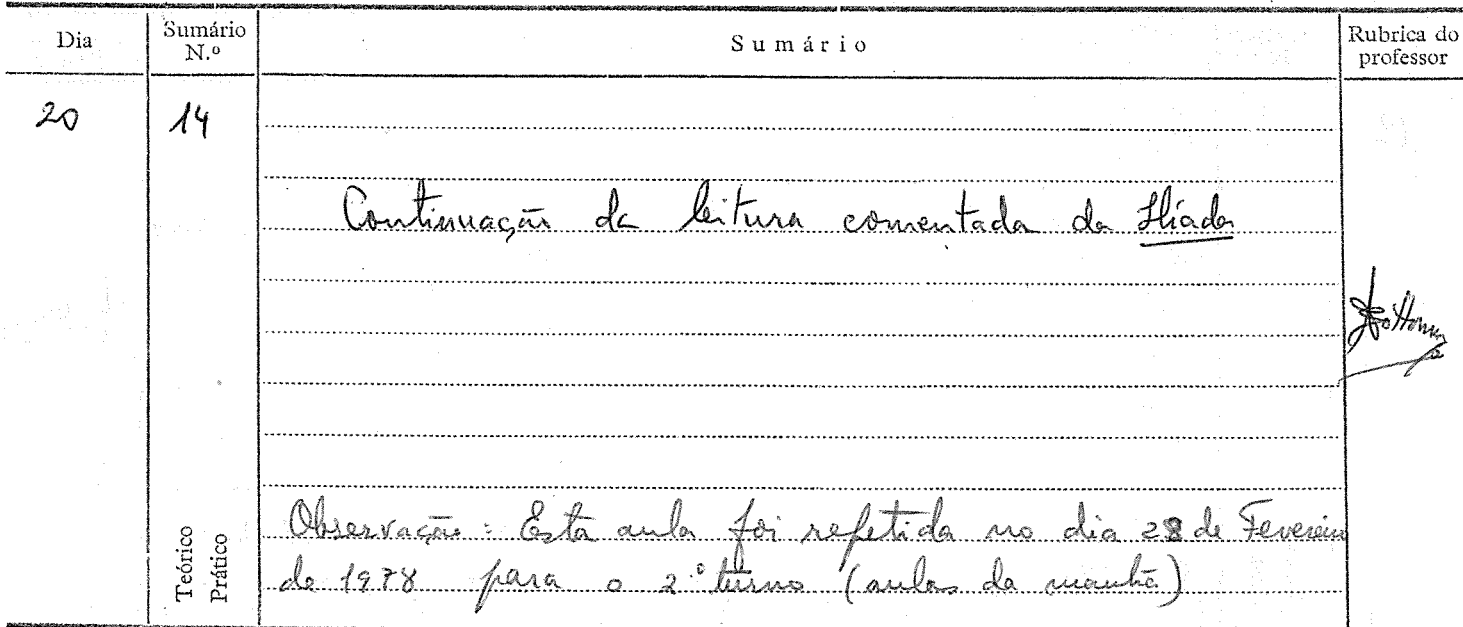 Dia
Sumário N.º
Sumário
Rubrica do professor
20
14
Continuação da leitura comentada da Ilíada
Teórico
Prático
Observação: Esta aula foi repetida no dia 28 de Fevereiro
de 1978 para o 2.º turno (aulas da manhã)